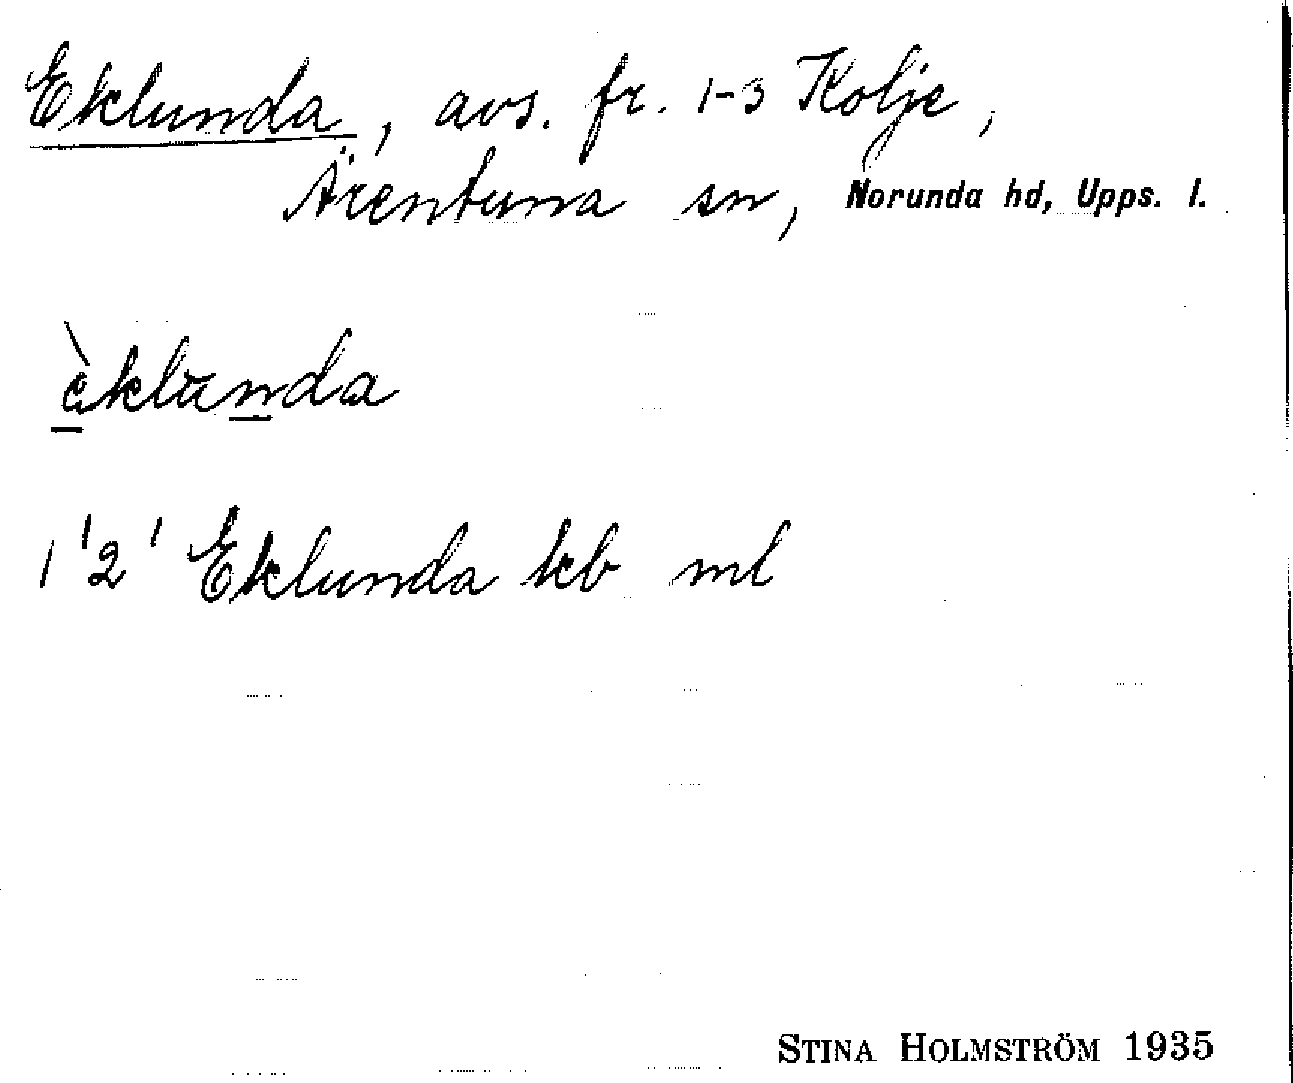 Eklunda, avs. fr. 1-3 Kolje,
Ärentuna sn, Norunda hd, Upps. l.
èklunda
1'2' Eklunda kb ml
STINA HOLMSTRÖM 1935